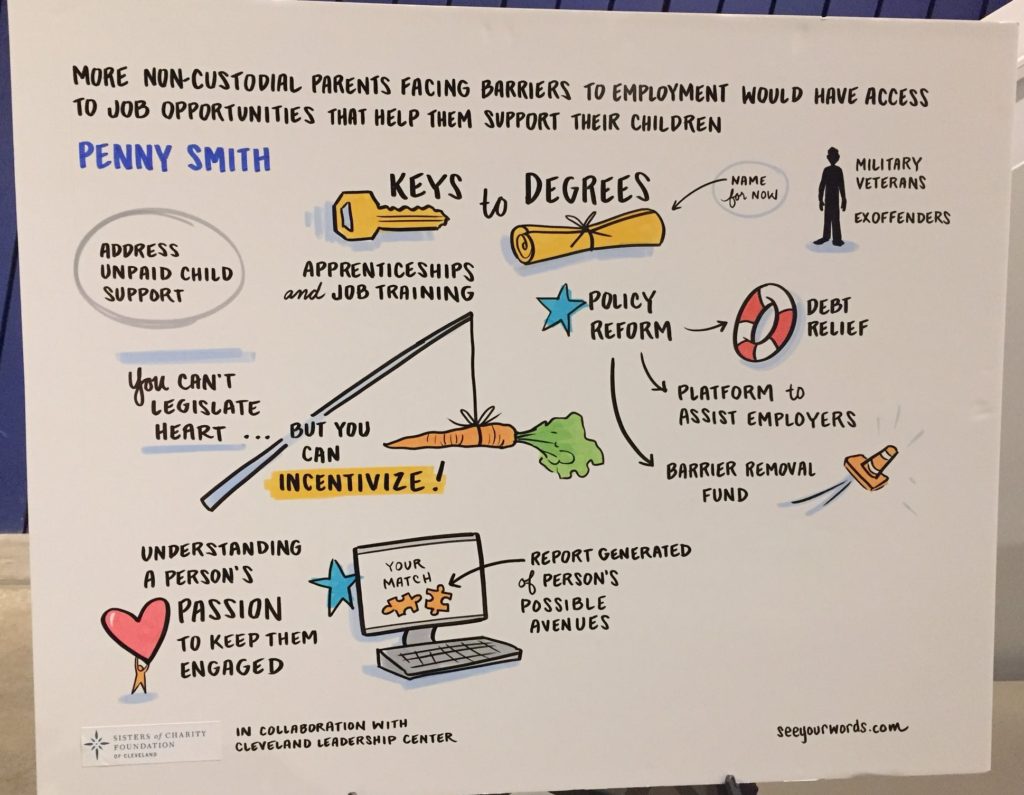 MORE NON-CUSTODIAL PARENTS FACING BARRIERS TO EMPLOYMENT WOULD HAVE ACCESS
TO JOB OPPORTUNITIES THAT HELP THEM SUPPORT THEIR CHILDREN
PENNY SMITH
KEYS to DEGREES
NAME
for NOW
MILITARY
VETERANS
EXOFFENDERS
ADDRESS
UNPAID CHILD
SUPPORT
APPRENTICESHIPS
and JOB TRAINING
POLICY
REFORM
DEBT
RELIEF
PLATFORM to
ASSIST EMPLOYERS
BARRIER REMOVAL
FUND
You CAN'T
LEGISLATE
HEART ...
BUT YOU
CAN
INCENTIVIZE!
UNDERSTANDING
A PERSON'S
PASSION
TO KEEP THEM
ENGAGED
YOUR
MATCH
REPORT GENERATED
of PERSON'S
POSSIBLE
AVENUES
SISTERS of CHARITY
FOUNDATION
OF CLEVELAND
IN COLLABORATION WITH
CLEVELAND LEADERSHIP CENTER
seeyourwords.com